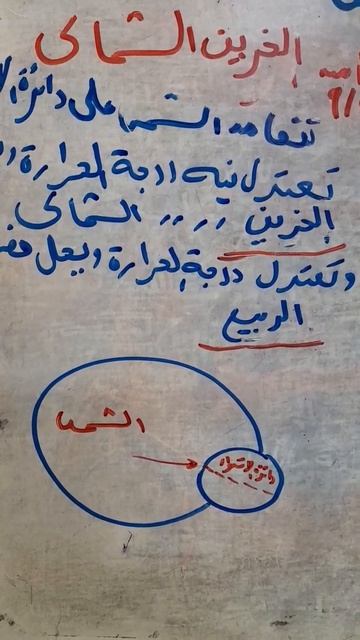 الخريف الشمالى
تتعامد الشمس على دائرة
تعتدل فيه درجة الحرارة
الخريف ,, ,, الشمالى
وتعتدل درجة الحرارة ويحل
الربيع
الشمس
دائرة الاستواء